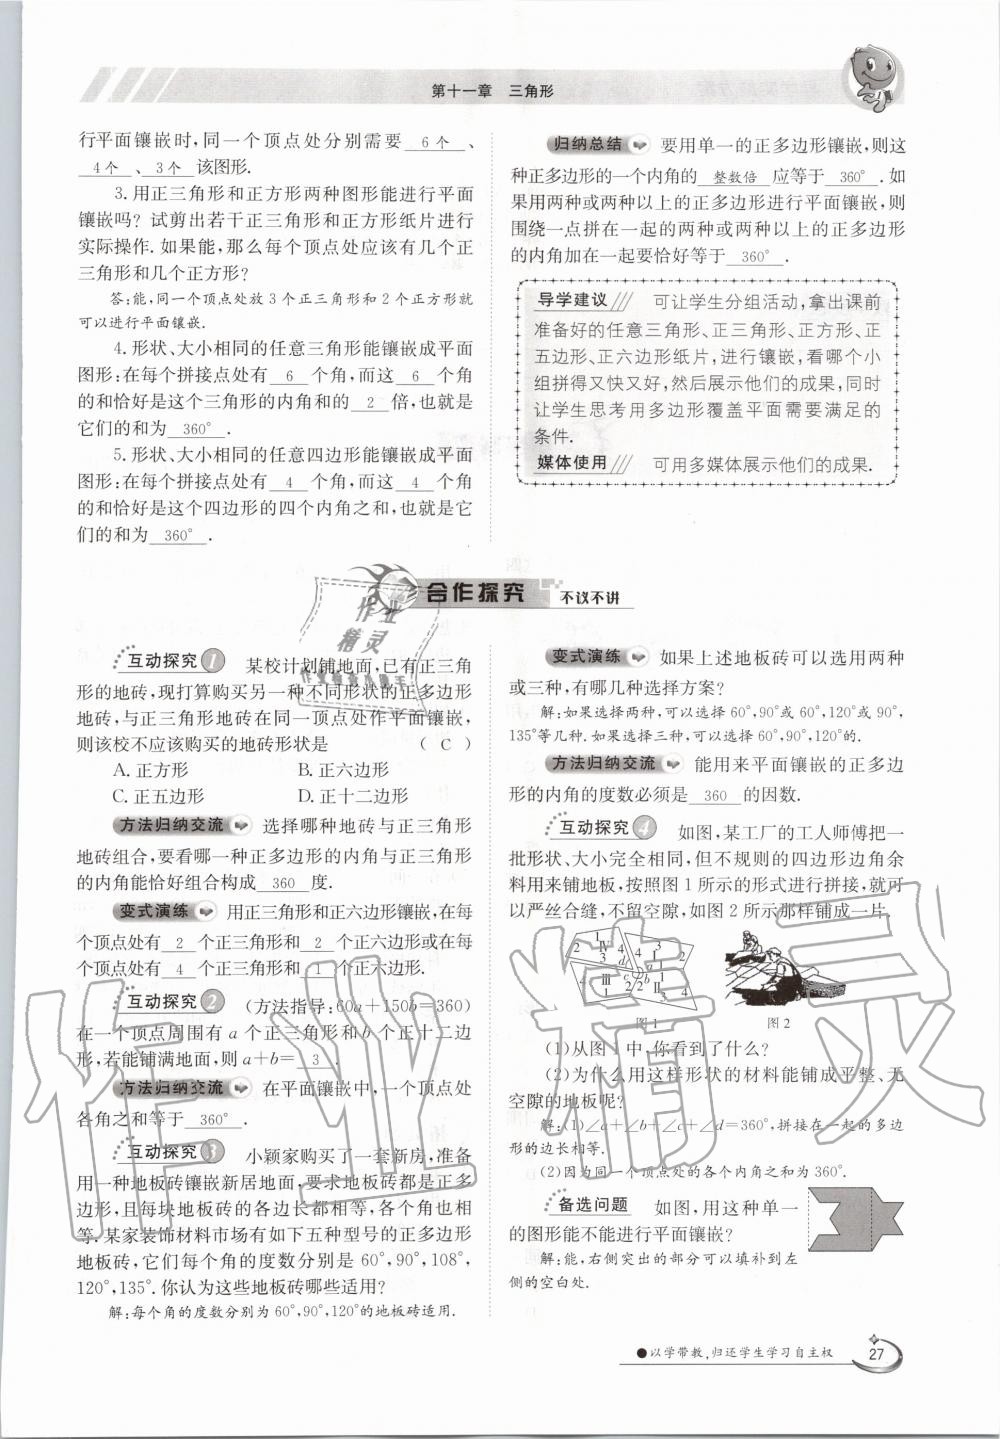 第十一章 三角形
行平面镶嵌时,同一个顶点处分别需要 6个 、
4个 、 3个 该图形.
3.用正三角形和正方形两种图形能进行平面
镶嵌吗? 试剪出若干正三角形和正方形纸片进行
实际操作.如果能,那么每个顶点处应该有几个正
三角形和几个正方形?
答:能,同一个顶点处放3个正三角形和2个正方形就
可以进行平面镶嵌.
4.形状、大小相同的任意三角形能镶嵌成平面
图形:在每个拼接点处有 6 个角,而这 6 个角
的和恰好是这个三角形的内角和的 2 倍,也就是
它们的和为 360° .
5.形状、大小相同的任意四边形能镶嵌成平面
图形:在每个拼接点处有 4 个角,而这 4 个角
的和恰好是这个四边形的四个内角之和,也就是它
们的和为 360° .
归纳总结 要用单一的正多边形镶嵌,则这
种正多边形的一个内角的 整数倍 应等于 360° .如
果用两种或两种以上的正多边形进行平面镶嵌,则
围绕一点拼在一起的两种或两种以上的正多边形
的内角加在一起要恰好等于 360° .
导学建议 可让学生分组活动,拿出课前
准备好的任意三角形、正三角形、正方形、正
五边形、正六边形纸片,进行镶嵌,看哪个小
组拼得又快又好,然后展示他们的成果,同时
让学生思考用多边形覆盖平面需要满足的
条件.
媒体使用 可用多媒体展示他们的成果.
合作探究 不议不讲
互动探究1 某校计划铺地面,已有正三角
形的地砖,现打算购买另一种不同形状的正多边形
地砖,与正三角形地砖在同一顶点处作平面镶嵌,
则该校不应该购买的地砖形状是 ( C )
A.正方形 B.正六边形
C.正五边形 D.正十二边形
方法归纳交流 选择哪种地砖与正三角形
地砖组合,要看哪一种正多边形的内角与正三角形
的内角能恰好组合构成 360 度.
变式演练 用正三角形和正六边形镶嵌,在每
个顶点处有 2 个正三角形和 2 个正六边形或在每
个顶点处有 4 个正三角形和 1 个正六边形.
互动探究2 (方法指导:60a+150b=360)
在一个顶点周围有a个正三角形和b个正十二边
形,若能铺满地面,则a+b= 3 .
方法归纳交流 在平面镶嵌中,一个顶点处
各角之和等于 360° .
互动探究3 小颖家购买了一套新房,准备
用一种地板砖镶嵌新居地面,要求地板砖都是正多
边形,且每块地板砖的各边长都相等,各个角也相
等.某家装饰材料市场有如下五种型号的正多边形
地板砖,它们每个角的度数分别是60°,90°,108°,
120°,135°.你认为这些地板砖哪些适用?
解:每个角的度数分别为60°,90°,120°的地板砖适用.
变式演练 如果上述地板砖可以选用两种
或三种,有哪几种选择方案?
解:如果选择两种,可以选择60°,90°或60°,120°或90°,
135°等几种.如果选择三种,可以选择60°,90°,120°的.
方法归纳交流 能用来平面镶嵌的正多边
形的内角的度数必须是 360 的因数.
互动探究4 如图,某工厂的工人师傅把一
批形状、大小完全相同,但不规则的四边形边角余
料用来铺地板,按照图1所示的形式进行拼接,就可
以严丝合缝,不留空隙,如图2所示那样铺成一片.
图1 图2
(1)从图1中,你看到了什么?
(2)为什么用这样形状的材料能铺成平整、无
空隙的地板呢?
解:(1)∠a+∠b+∠c+∠d=360°,拼接在一起的多边
形的边长相等.
(2)因为同一个顶点处的各个内角之和为360°.
备选问题 如图,用这种单一
的图形能不能进行平面镶嵌?
解:能,右侧突出的部分可以填补到左
侧的空白处.
●以学带教,归还学生学习自主权
27
作业精灵